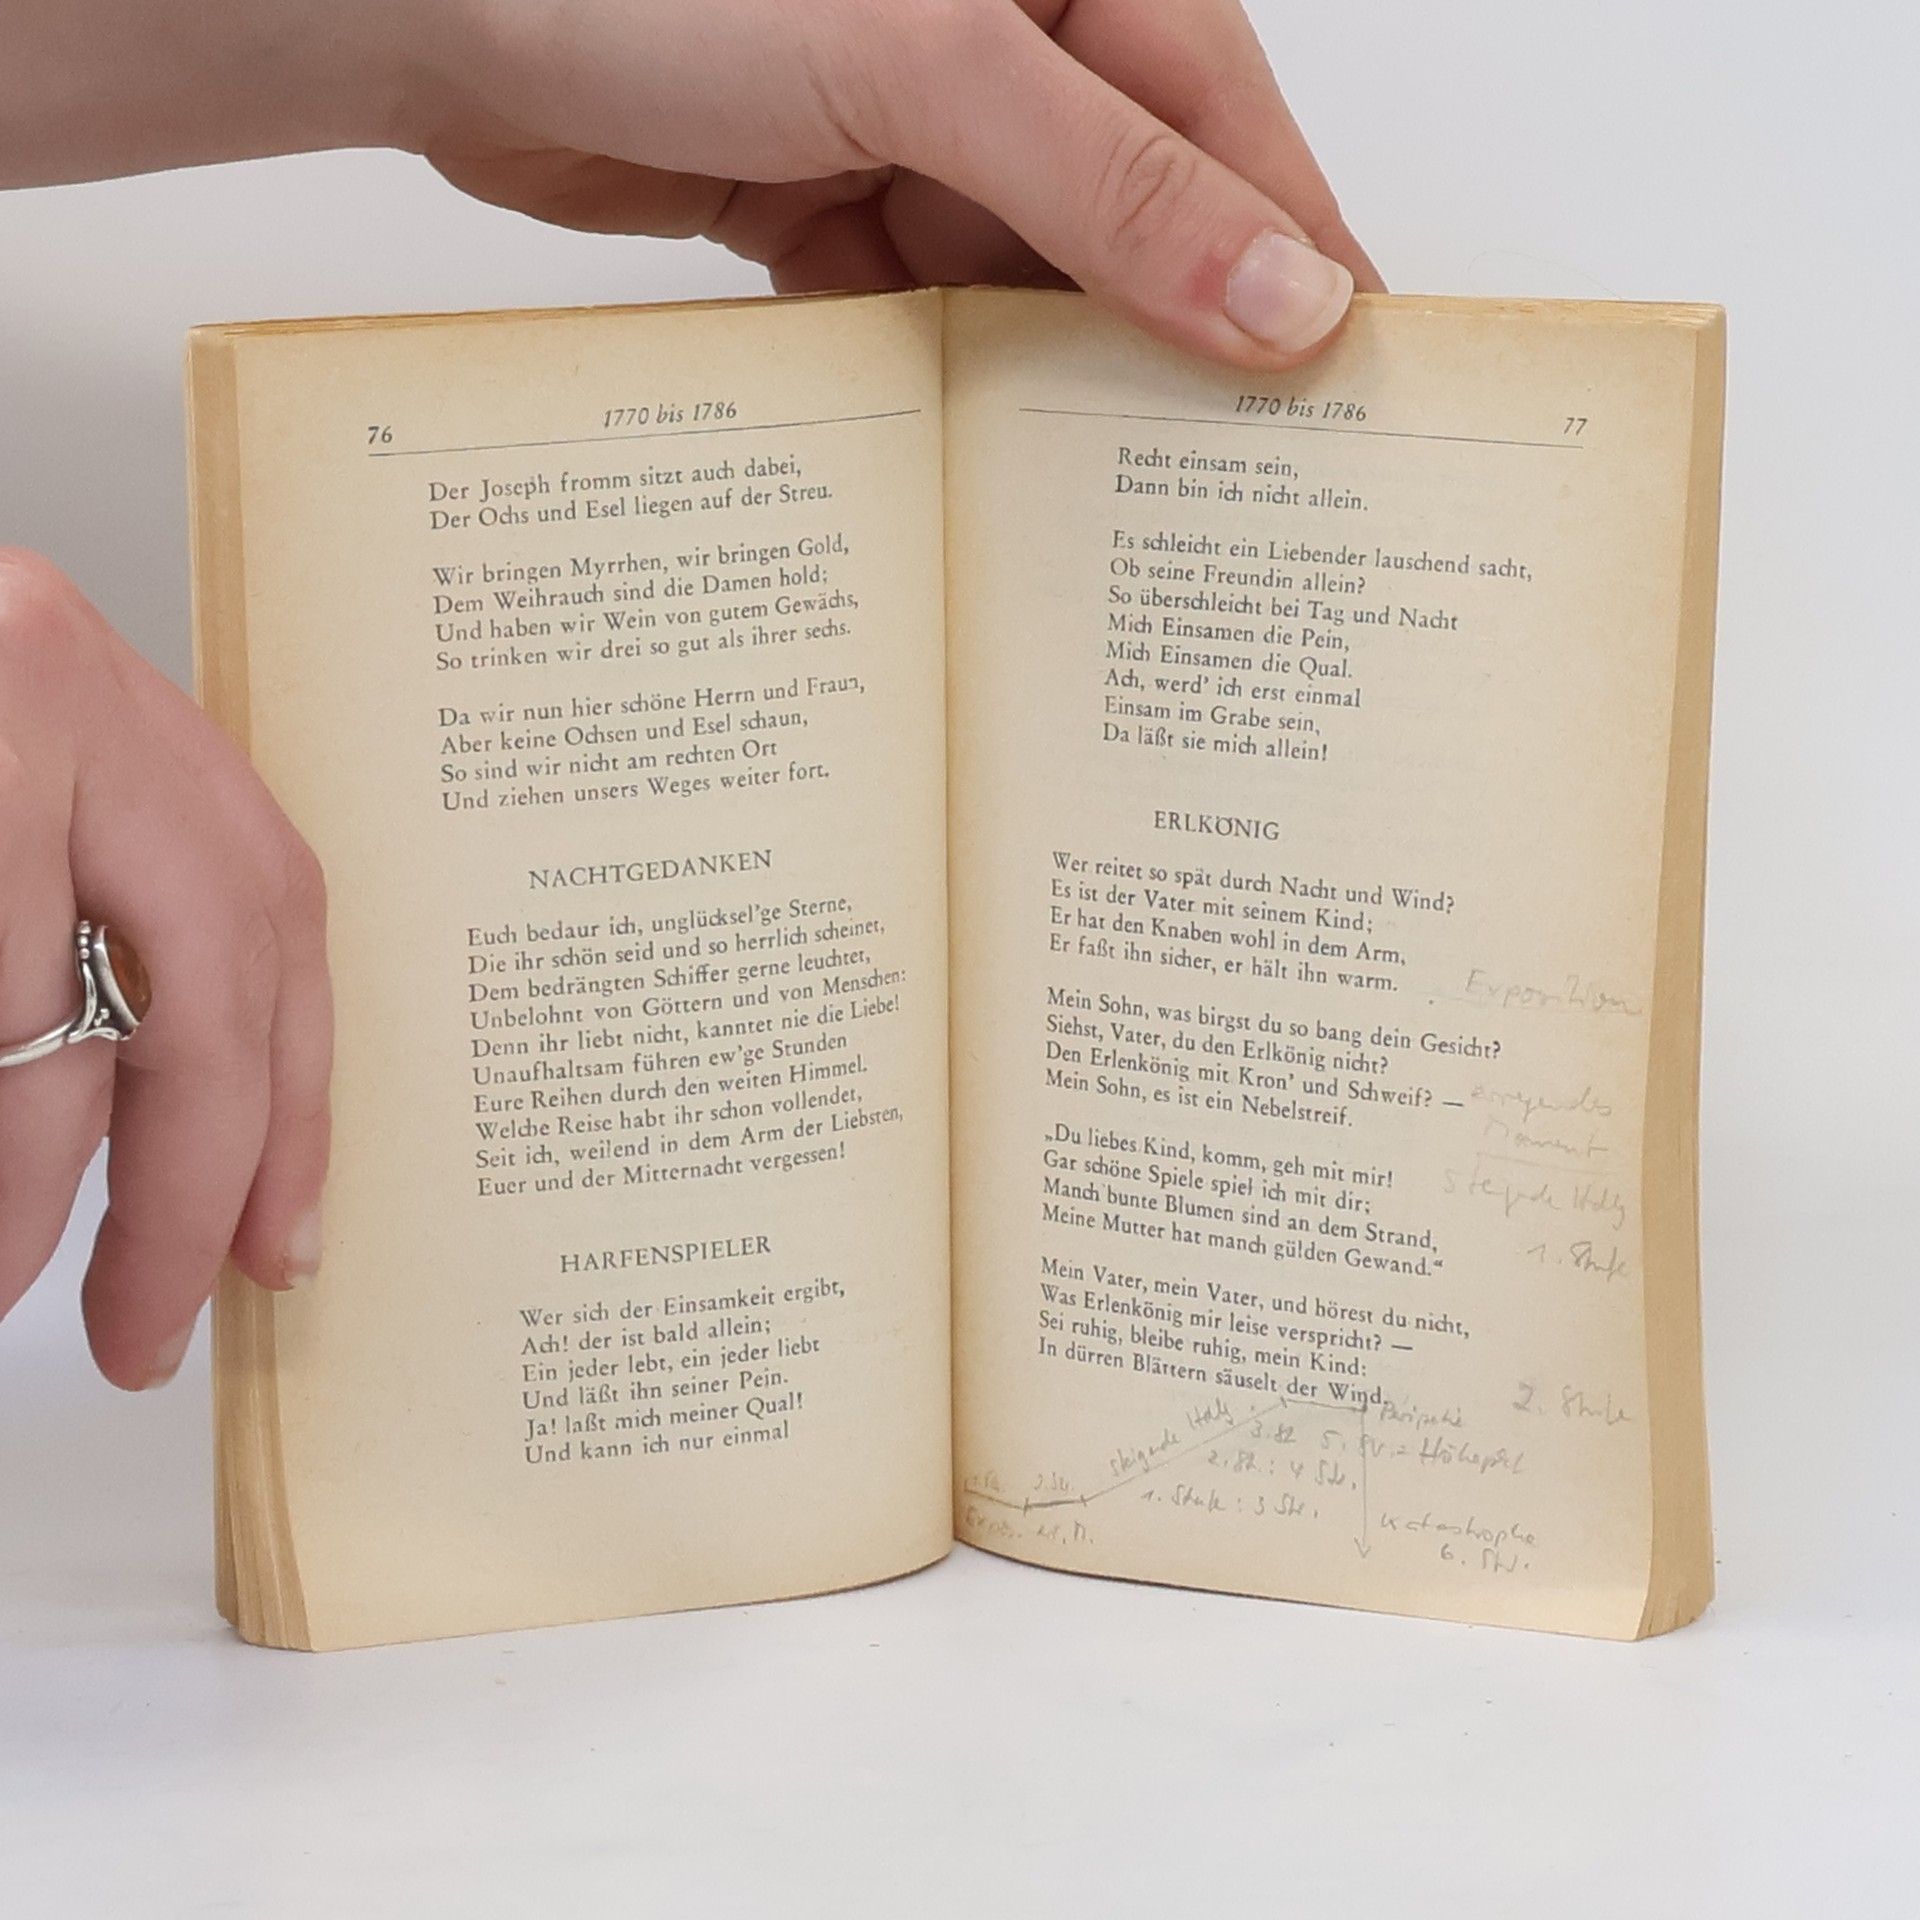 76
1770 bis 1786
Der Joseph fromm sitzt auch dabei,
Der Ochs und Esel liegen auf der Streu.
Wir bringen Myrrhen, wir bringen Gold,
Dem Weihrauch sind die Damen hold;
Und haben wir Wein von gutem Gewächs,
So trinken wir drei so gut als ihrer sechs.
Da wir nun hier schöne Herrn und Fraun,
Aber keine Ochsen und Esel schaun,
So sind wir nicht am rechten Ort
Und ziehen unsers Weges weiter fort.
NACHTGEDANKEN
Euch bedaur ich, unglücksel'ge Sterne,
Die ihr schön seid und so herrlich scheinet,
Dem bedrängten Schiffer gerne leuchtet,
Unbelohnt von Göttern und von Menschen:
Denn ihr liebt nicht, kanntet nie die Liebe!
Unaufhaltsam führen ew'ge Stunden
Eure Reihen durch den weiten Himmel.
Welche Reise habt ihr schon vollendet,
Seit ich, weilend in dem Arm der Liebsten,
Euer und der Mitternacht vergessen!
HARFENSPIELER
Wer sich der Einsamkeit ergibt,
Ach! der ist bald allein;
Ein jeder lebt, ein jeder liebt
Und läßt ihn seiner Pein.
Ja! laßt mich meiner Qual!
Und kann ich nur einmal
1770 bis 1786
77
Recht einsam sein,
Dann bin ich nicht allein.
Es schleicht ein Liebender lauschend sacht,
Ob seine Freundin allein?
So überschleicht bei Tag und Nacht
Mich Einsamen die Pein,
Mich Einsamen die Qual.
Ach, werd' ich erst einmal
Einsam im Grabe sein,
Da läßt sie mich allein!
ERLKÖNIG
Wer reitet so spät durch Nacht und Wind?
Es ist der Vater mit seinem Kind;
Er hat den Knaben wohl in dem Arm,
Er faßt ihn sicher, er hält ihn warm.
Exposition
Mein Sohn, was birgst du so bang dein Gesicht?
Siehst, Vater, du den Erlkönig nicht?
Den Erlenkönig mit Kron' und Schweif? —
Mein Sohn, es ist ein Nebelstreif.
erregendes
Moment
„Du liebes Kind, komm, geh mit mir!
Gar schöne Spiele spiel ich mit dir;
Manch bunte Blumen sind an dem Strand,
Meine Mutter hat manch gülden Gewand.“
steigende Hdlg
1. Stufe
Mein Vater, mein Vater, und hörest du nicht,
Was Erlenkönig mir leise verspricht? —
Sei ruhig, bleibe ruhig, mein Kind:
In dürren Blättern säuselt der Wind.
2. Stufe
steigende Hdlg.
Peripetie
2. St.: 4 Str.
1. Stufe: 3 Str.
Katastrophe
6. Str.